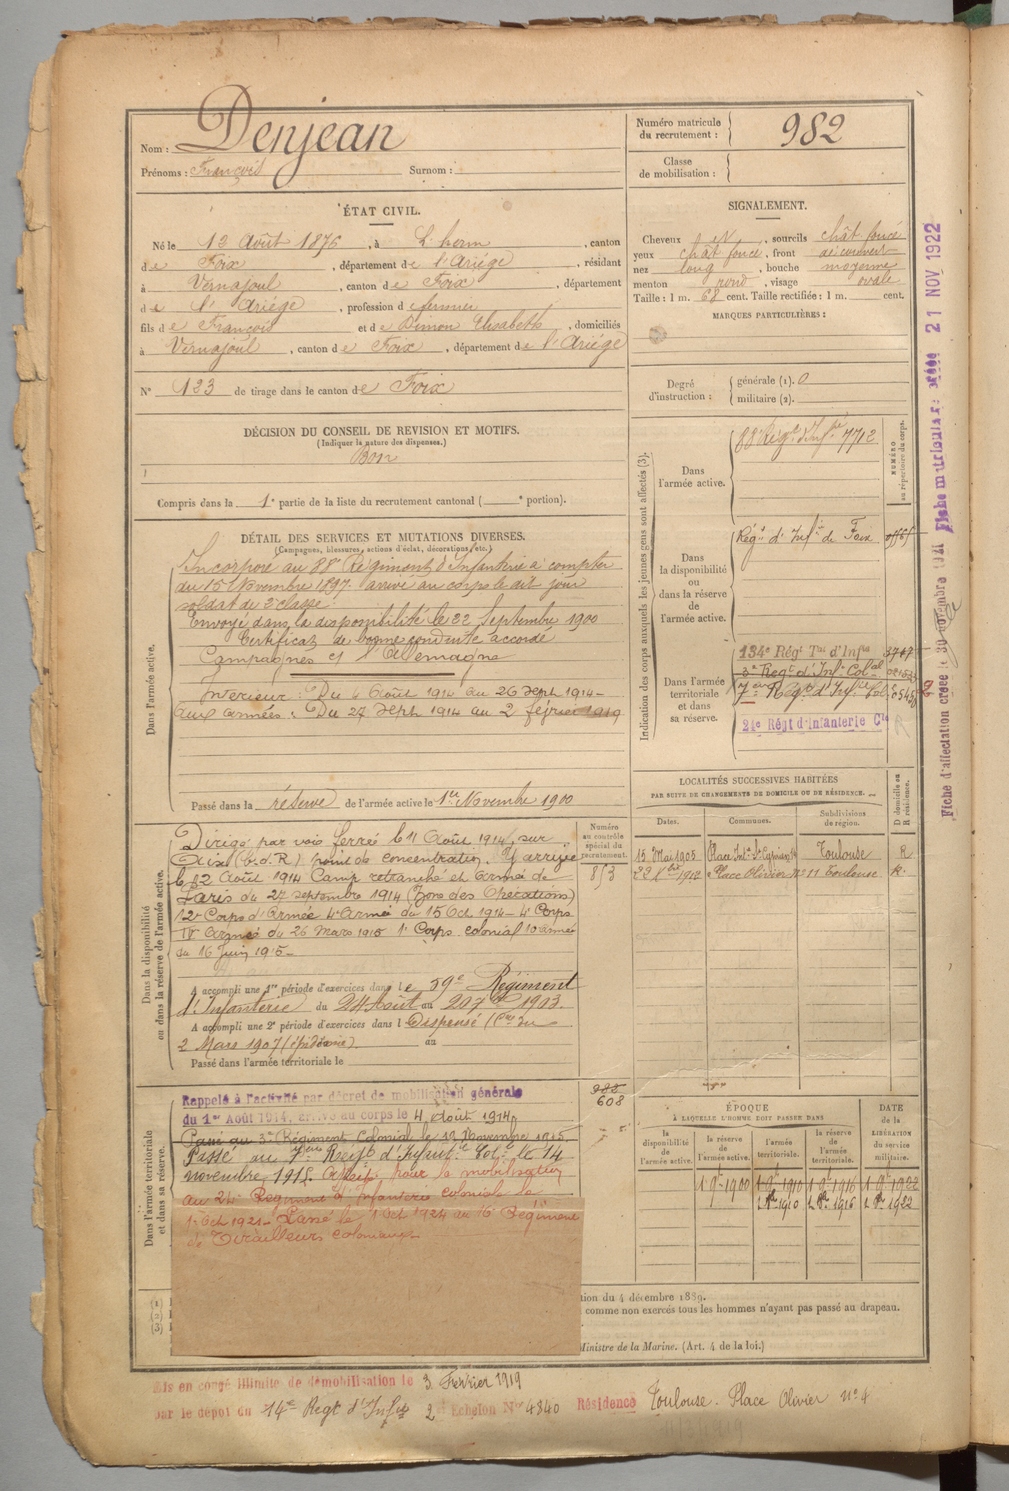 Nom : Denjean
Prénoms : François Surnom :
Numéro matricule du recrutement : 982
Classe de mobilisation :
ÉTAT CIVIL.
Né le 12 Août 1876, à L'herm, canton
de Foix, département de l'Ariége, résidant
à Vernajoul, canton de Foix, département
de l'Ariége, profession de
fils de François et de Simon Elisabeth, domiciliés
à Vernajoul, canton de Foix, département de l'Ariége
N° 123 de tirage dans le canton de Foix
SIGNALEMENT.
Cheveux et sourcils chât foncé
yeux chât foncé, front découvert
nez long, bouche moyenne
menton rond, visage ovale
Taille : 1 m. 68 cent. Taille rectifiée : 1 m. cent.
MARQUES PARTICULIÈRES :
Degré d'instruction : générale (1). 0
militaire (2).
DÉCISION DU CONSEIL DE REVISION ET MOTIFS.
(Indiquer la nature des dispenses.)
Bon
Compris dans la 1e partie de la liste du recrutement cantonal ( e portion).
DÉTAIL DES SERVICES ET MUTATIONS DIVERSES.
(Campagnes, blessures, actions d'éclat, décorations, etc.)
Dans l'armée active.
Incorporé au 88e Régiment d'Infanterie à compter
du 15 Novembre 1897 arrivé au corps le dit jour
soldat de 2e classe.
Envoyé dans la disponibilité le 22 Septembre 1900
Certificat de bonne conduite accordé
Campagnes c/ l'Allemagne
Intérieur : Du 4 Août 1914 au 26 Sept 1914-
Aux armées : Du 27 Sept 1914 au 2 février 1919
Passé dans la réserve de l'armée active le 1er Novembre 1900
Indication des corps auxquels les jeunes gens sont affectés (3).
NUMÉRO au répertoire du corps.
Dans l'armée active. 88e Régt d'Infie 7712
Dans la disponibilité ou dans la réserve de l'armée active. Régt d'Infie de Foix
Dans l'armée territoriale et dans sa réserve.
134e Régt Tal d'Infie
3e Regt d'Inf Colal
7eme Régt d'Infie Col
24e Régt d'Infanterie Cle
LOCALITÉS SUCCESSIVES HABITÉES
PAR SUITE DE CHANGEMENTS DE DOMICILE OU DE RÉSIDENCE.
Dates. Communes. Subdivisions de région. D domicile ou R résidence.
15 Mai 1905 Place Intre St Cyprien Toulouse R
1912 Place Olivier n° 11 Toulouse R.
Dans la disponibilité ou dans la réserve de l'armée active.
Numéro au contrôle spécial du recrutement.
853
Dirigé par voie ferrée le 11 Août 1914, sur
(b.d.R) point de concentration. Y arrivé
le 12 Août 1914 Camp retranché et Armée de
Paris du 27 septembre 1914 (Zone des Opérations)
12e Corps d'Armée 4e Armée du 15 Oct 1914 - 4e Corps
IVe Armée du 26 Mars 1915 1er Corps colonial 10e armée
du 16 Juin 1915-
A accompli une 1re période d'exercices dans le 59e Régiment
d'Infanterie du 24 Août au 20 7bre 1903.
A accompli une 2e période d'exercices dans l Dispensé (Cre du
2 Mars 1907 (épidémie) au
Passé dans l'armée territoriale le
Dans l'armée territoriale et dans sa réserve.
988
608
Rappelé à l'activité par décret de mobilisation générale
du 1er Août 1914, arrivé au corps le 4 Août 1914,
Passé au 3e Régiment Colonial le 12 Novembre 1915
Passé au 7eme Regt d'Infantie Cole le 14
novembre 1915. Affecté pour la mobilisation
au 24e Régiment d'Infanterie coloniale le
1er Oct 1921. Passé le 1er Oct 1924 au 16e Régiment
de Tirailleurs coloniaux
ÉPOQUE
À LAQUELLE L'HOMME DOIT PASSER DANS
la disponibilité de l'armée active. la réserve de l'armée active. l'armée territoriale. la réserve de l'armée territoriale.
DATE de la LIBÉRATION du service militaire.
1 9bre 1900 1 9bre 1910 1 9bre 1916 1 9bre 1922
1 8bre 1910 1 8bre 1916 1 8bre 1922
(1)
(2)
(3)
tion du 4 décembre 1889.
comme non exercés tous les hommes n'ayant pas passé au drapeau.
Ministre de la Marine. (Art. 4 de la loi.)
Mis en congé illimité de démobilisation le 3 Février 1919
par le dépôt du 14e Regt d'Infie 2e Echelon N° 4340 Résidence Toulouse. Place Olivier n° 4
Fiche d'affectation créée le 30 novembre Fiche matricule créée 21 NOV 1922